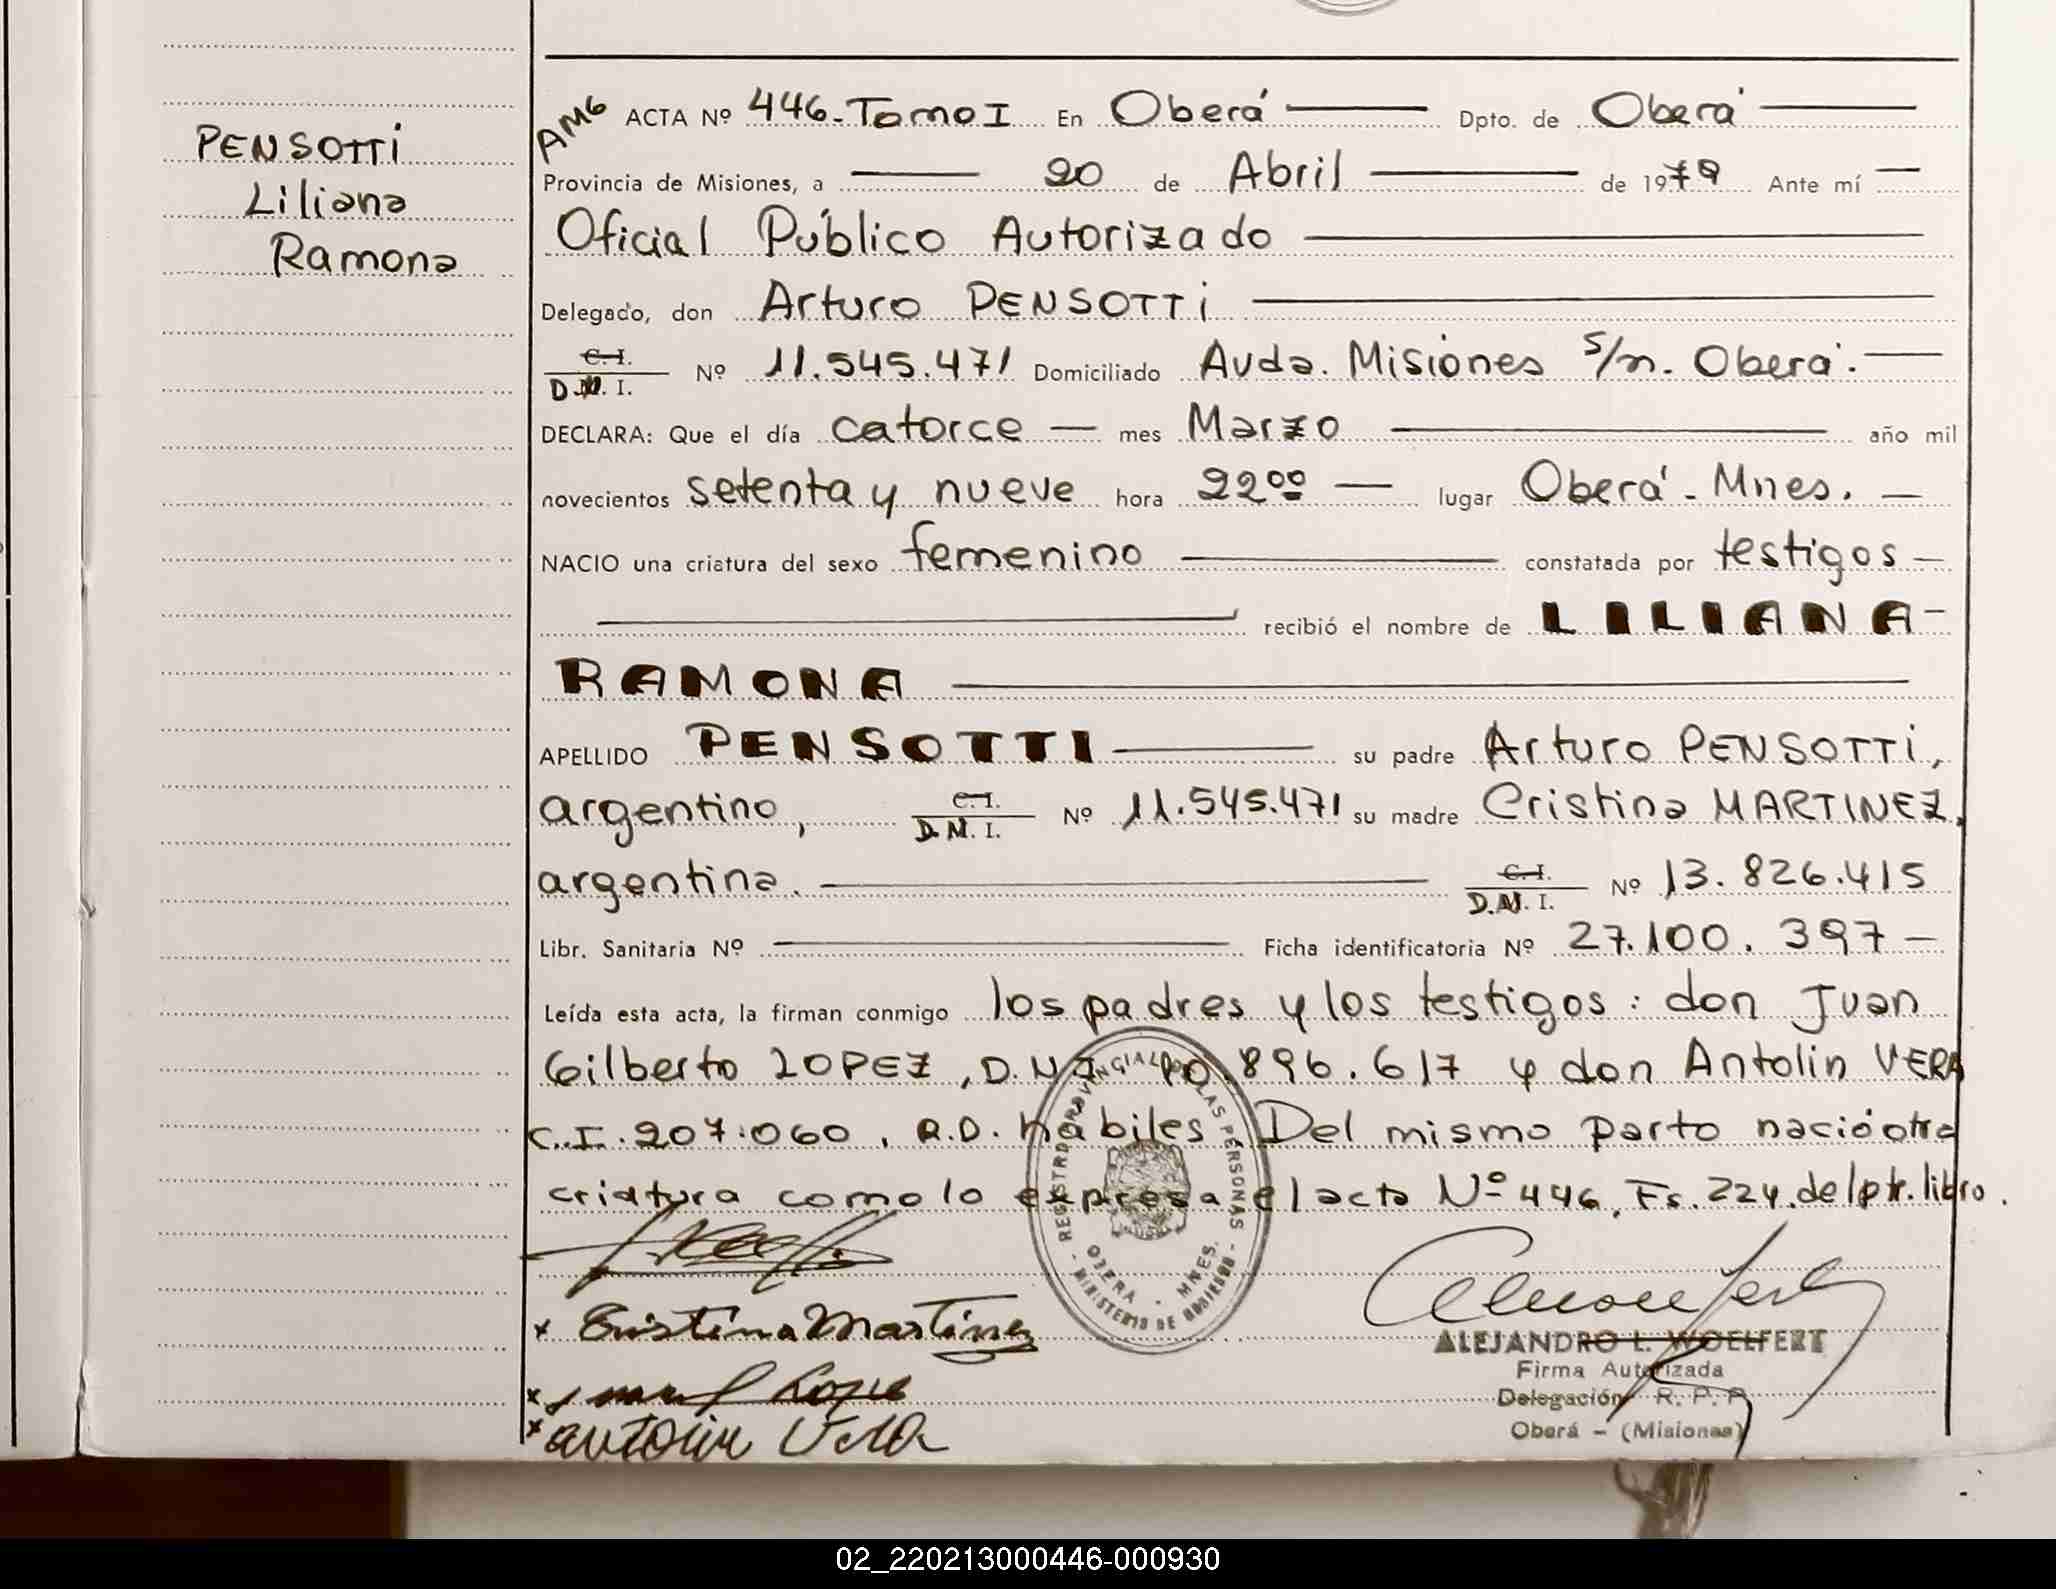 PENSOTTi
Liliana
Ramona
AMG ACTA Nº 446-Tomo I En Oberá Dpto. de Oberá
Provincia de Misiones, a 20 de Abril de 1979 Ante mí
Oficial Público Autorizado
Delegado, don Arturo PENSOTTi
C.I. D.N.I. Nº 11.545.471 Domiciliado Avda. Misiones s/n. Oberá.
DECLARA: Que el día catorce mes Marzo año mil
novecientos setenta y nueve hora 22 00 lugar Oberá - Mnes.
NACIO una criatura del sexo femenino constatada por testigos
recibió el nombre de LILIANA
RAMONA
APELLIDO PENSOTTI su padre Arturo PENSOTTi,
argentino, C.I. D.N.I. Nº 11.545.471 su madre Cristina MARTINEZ,
argentina. C.I. D.N.I. Nº 13.826.415
Libr. Sanitaria Nº Ficha identificatoria Nº 27.100.397
Leída esta acta, la firman conmigo los padres y los testigos: don Juan
Gilberto LOPEZ, D.N.I. 10.896.617 y don Antolin VERA
C.I. 207.060, R.D. hábiles. Del mismo parto nació otra
criatura como lo expresa el acta Nº 446, Fs. 224. del ptr. libro.
REGISTRO PROVINCIAL DE LAS PERSONAS
OBERA - MNES.
MINISTERIO DE GOBIERNO
x Cristina Martinez
x Lopez
x antolin Vera
ALEJANDRO L. WOELFERT
Firma Autorizada
Delegación R. P. P.
Oberá - (Misiones)
02_220213000446-000930